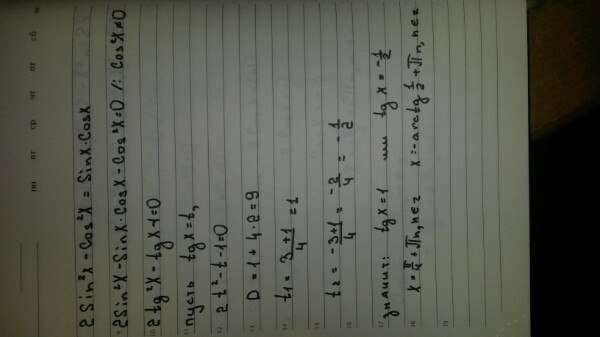 пн вт ср чт пт сб вс
2Sin²x - Cos²x = Sinx·Cosx
9 2Sin²x - Sinx·Cosx - Cos²x = 0 /: Cos²x ≠ 0
10 2tg²x - tgx - 1 = 0
11 пусть tgx = t,
12 2t² - t - 1 = 0
13 D = 1 + 4·2 = 9
14 t₁ = (3+1)/4 = 1
15 t₂ = (-3+1)/4 = -2/4 = -1/2
16
17 значит: tgx = 1 или tgx = -1/2
18 x = π/4 + πn, n∈z x = -arctg 1/2 + πn, n∈z
19